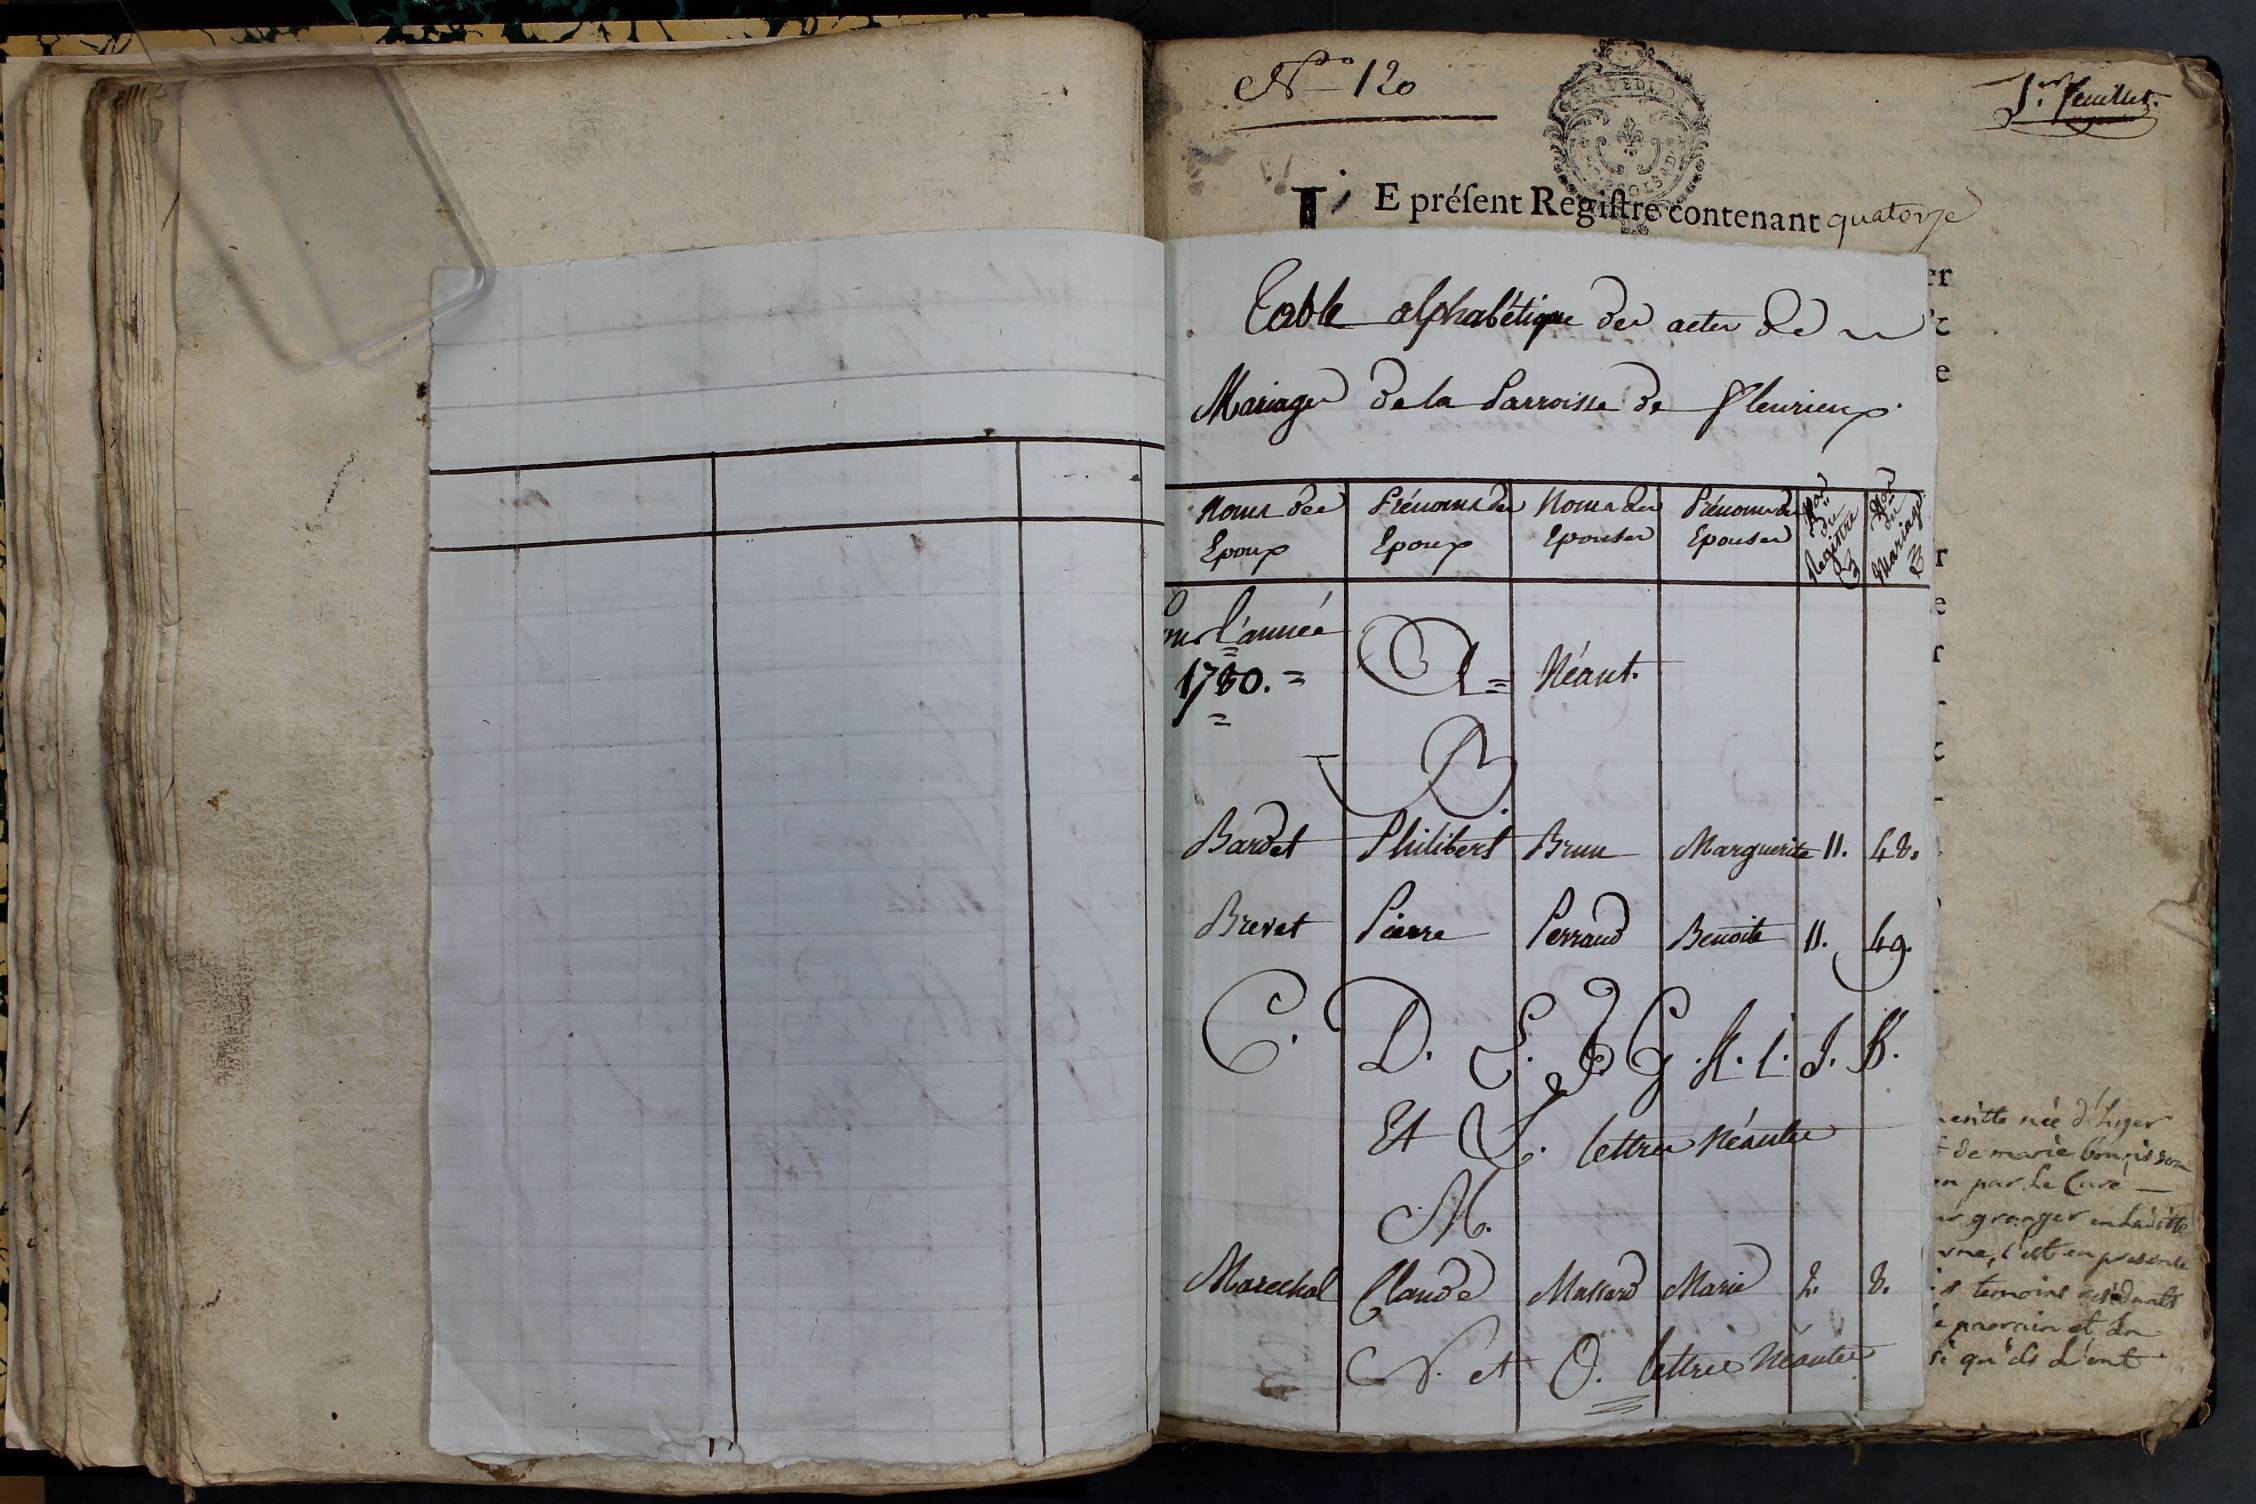 No 120
1.er feuillet.
LE préſent Regiſtre contenant quatorze
Table alphabétique des actes de
Mariages de la Parroisse de fleurieux.
Noms des Epoux | Prénoms des Epoux | Noms des Epouses | Prénoms des Epouses | Nos du Registre | Nos du Mariage
Pour l'année
1780. = A = Néant.
B.
Bardet Philibert Brun Marguerite 11. 48.
Brevet Pierre Perraud Benoite 11. 49.
C. D. E. F G .H. I. J. K.
Et L. lettres Néantes
M.
Marechal Claude Massard Marie 2. 8.
N. et O. lettres Néantes
née d'hyer
de marie
par le Curé
granger
c'est en presence
temoins residants
parrain et la
qu'ils l'ont